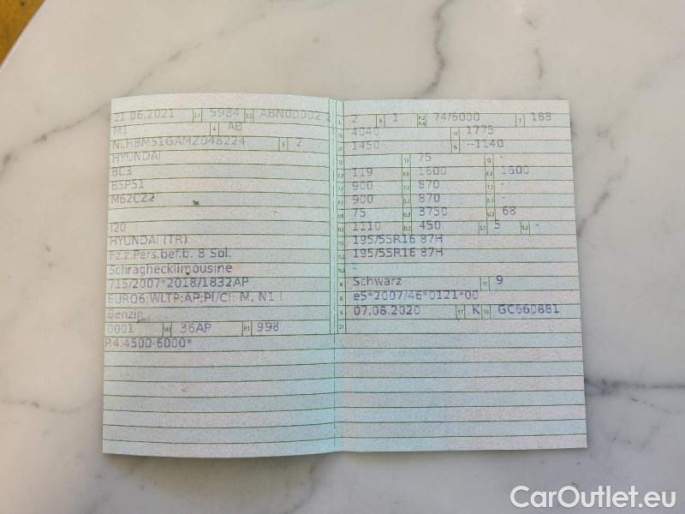 21.06.2021 5984 ABN00002
M1 AB
2
HYUNDAI
BC3
B5P51
M62CZ2
I20
HYUNDAI (TR)
Fz.z.Pers.bef.b. 8 Spl.
Schräghecklimousine
715/2007*2018/1832AP
EURO6;WLTP;AP;PI/CI; M, N1 I
Benzin
0001 36AP 998
P.4:4500-6000*
2 1 74/6000 188
4040 1775
1450 --1140
75 -
119 1600 1600
900 870 -
900 870 -
75 3750 68
1110 450 5 -
195/55R16 87H
195/55R16 87H
-
Schwarz 9
e5*2007/46*0121*00
07.08.2020 K GC660881
CarOutlet.eu